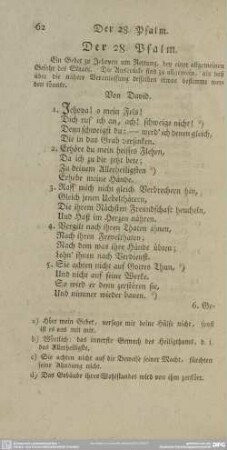 62 Der 28 Psalm.
Der 28 Psalm.
Ein Gebet zu Jehoven um Rettung, bey einer allgemeinen
Gefahr des Staats. Die Ausdrücke sind zu allgemein, als daß
über die nähere Veranlassung derselben etwas bestimmt wer-
den könnte.
Von David.
1. Jehova! o mein Fels!
Dich ruf' ich an, ach! schweige nicht! a)
Denn schweigst du: — werd' ich denen gleich,
Die in das Grab versinken.
2. Erhöre du mein heisses Flehen,
Da ich zu dir jetzt bete;
Zu deinem Allerheiligsten b)
Erhebe meine Hände.
3. Raff mich nicht gleich Verbrechern hin,
Gleich jenen Uebelthätern,
Die ihrem Nächsten Freundschaft heucheln,
Und Haß im Herzen nähren.
4. Vergilt nach ihren Thaten ihnen,
Nach ihren Frevelthaten;
Nach dem was ihre Hände üben;
Lohn' ihnen nach Verdienst.
5. Sie achten nicht auf Gottes Thun, c)
Und nicht auf seine Werke.
So wird er denn zerstören sie,
Und nimmer wieder bauen. d)
6. Ge-
a) Höre mein Gebet, versage mir deine Hülfe nicht, sonst
ist es aus mit mir.
b) Wörtlich: das innerste Gemach des Heiligthums, d. i.
das Allerheiligste.
c) Sie achten nicht auf die Beweise seiner Macht, fürchten
seine Ahndung nicht.
d) Das Gebäude ihres Wohlstandes wird von ihm zerstört.